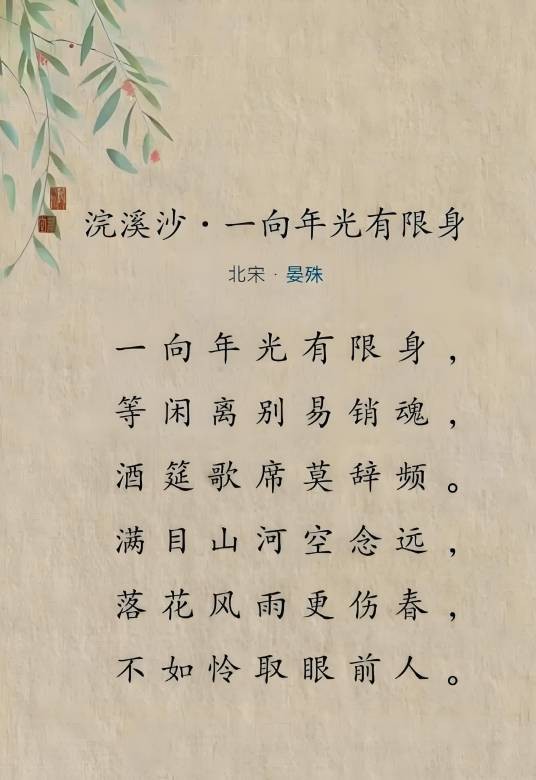 浣溪沙·一向年光有限身
北宋·晏殊
一向年光有限身，
等闲离别易销魂，
酒筵歌席莫辞频。
满目山河空念远，
落花风雨更伤春，
不如怜取眼前人。